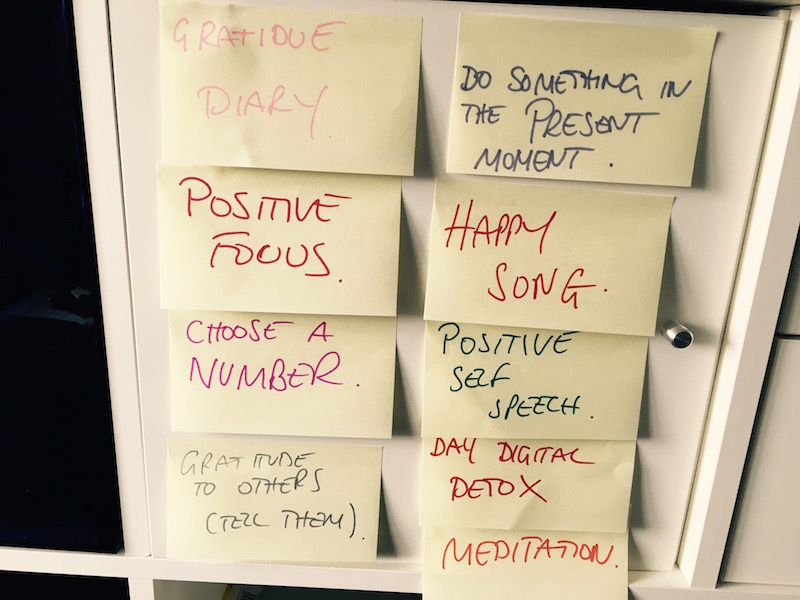 GRATIDUE
DIARY.
POSITIVE
FOCUS.
CHOOSE A
NUMBER.
GRATITUDE
TO OTHERS
(TELL THEM).
DO SOMETHING IN
THE PRESENT
MOMENT.
HAPPY
SONG.
POSITIVE
SELF
SPEECH.
DAY DIGITAL
DETOX
MEDITATION.